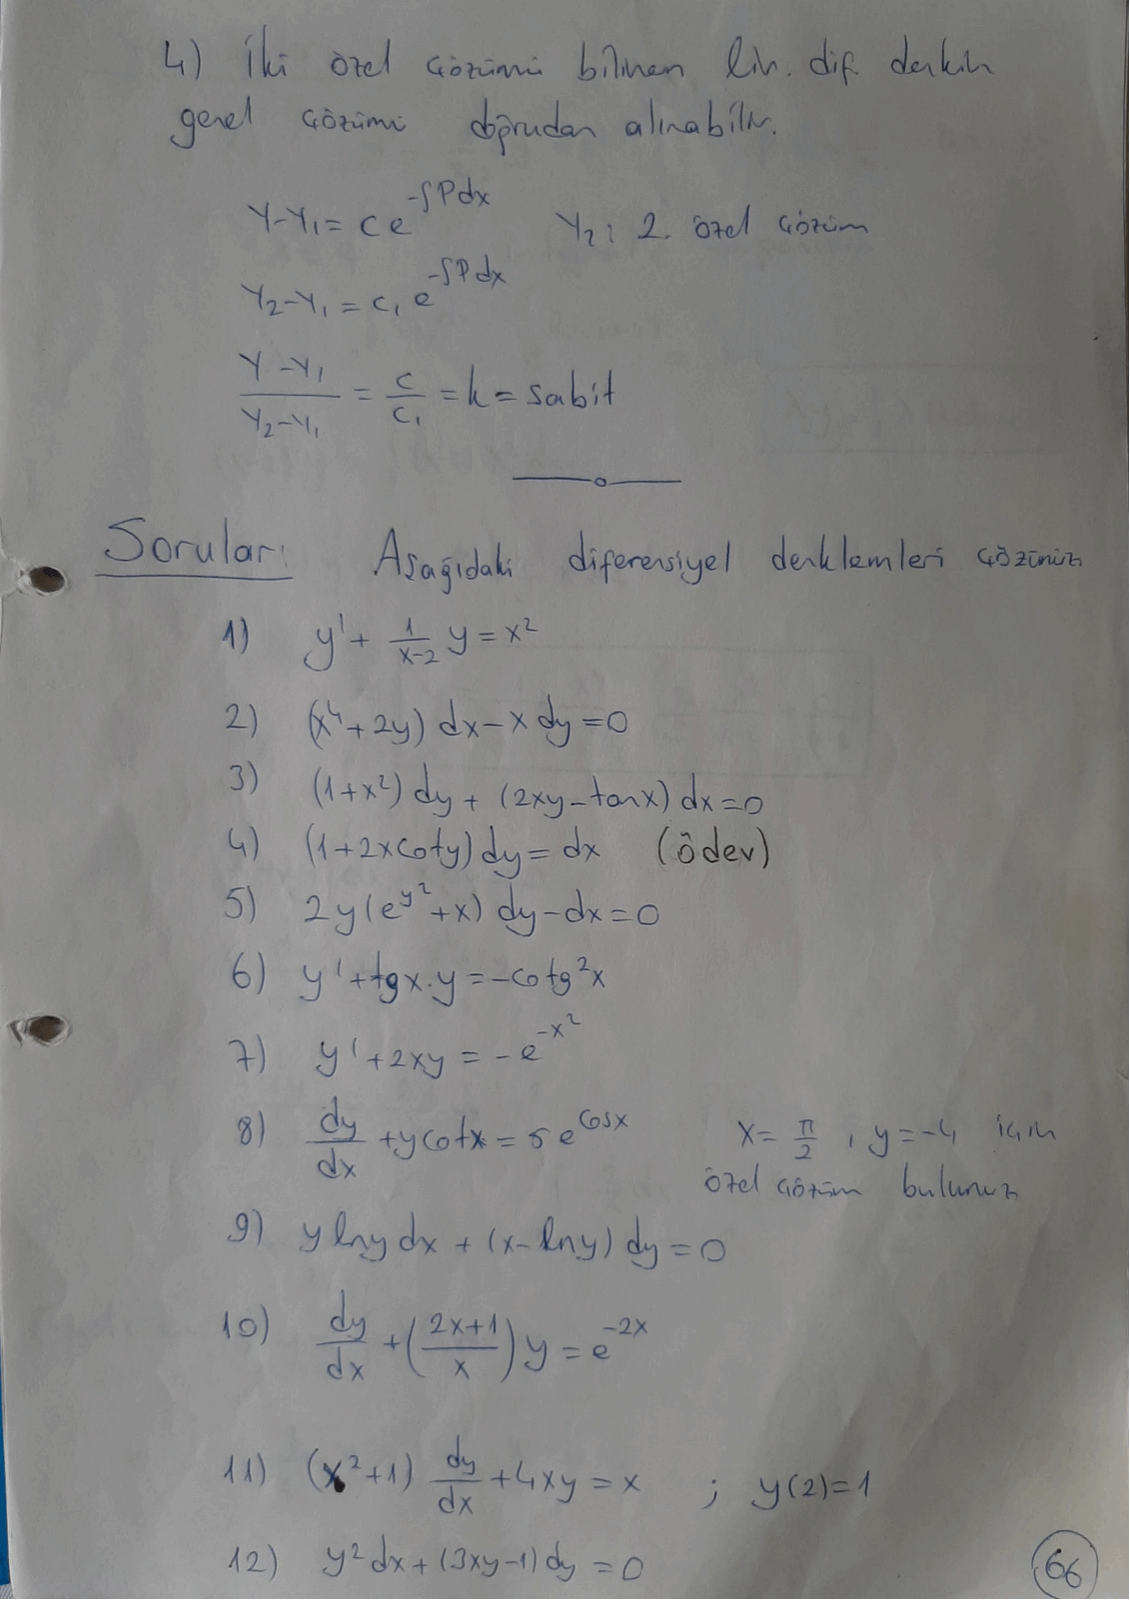 4) İki özel çözümü bilinen lin. dif. denkin
genel çözümü doğrudan alınabilir.
Y-Y₁ = c e^(-∫Pdx) Y₂: 2. özel çözüm
Y₂-Y₁ = c₁ e^(-∫Pdx)
(Y-Y₁)/(Y₂-Y₁) = c/c₁ = k = sabit
Sorular: Aşağıdaki diferensiyel denklemleri çözünüz
1) y' + 1/(x-2) y = x²
2) (x⁴+2y) dx - x dy = 0
3) (1+x²) dy + (2xy - tanx) dx = 0
4) (1+2xcoty) dy = dx (ödev)
5) 2y(e^(y²)+x) dy - dx = 0
6) y' + tgx.y = -cotg²x
7) y' + 2xy = -e^(-x²)
8) dy/dx + ycotx = 5e^(cosx) x = π/2 , y = -4 için
özel çözüm bulunuz
9) y lny dx + (x - lny) dy = 0
10) dy/dx + ((2x+1)/x) y = e^(-2x)
11) (x²+1) dy/dx + 4xy = x ; y(2)=1
12) y² dx + (3xy-1) dy = 0
66